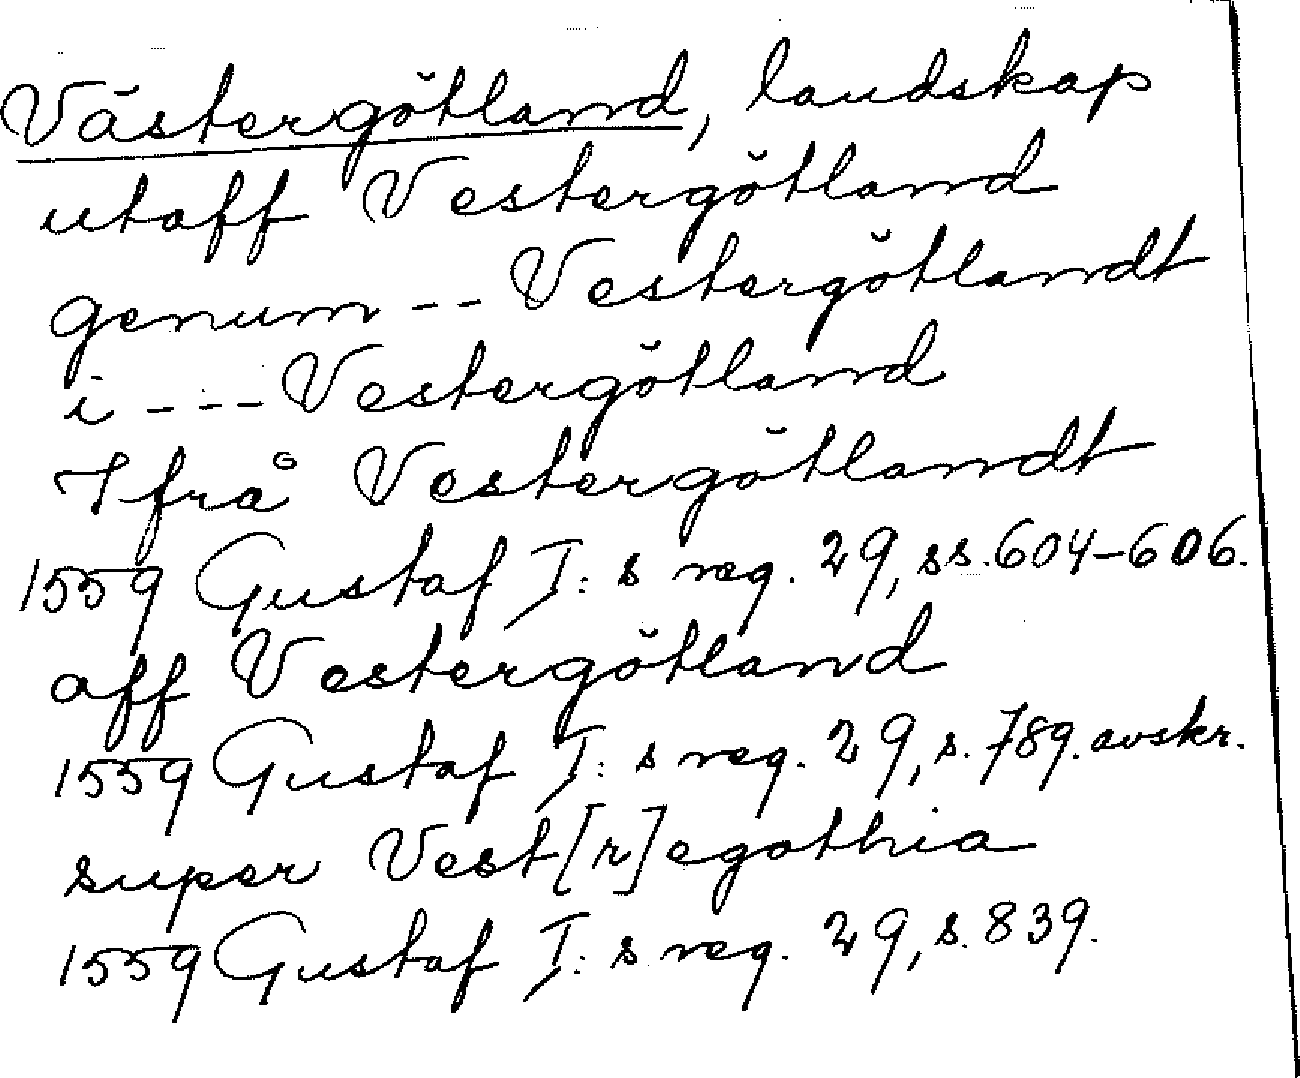 Västergötland, landskap
utaff Vestergötland
genum -- Vestergötlandt
i --- Vestergötland
Ifrå Vestergötlandt
1559 Gustaf I:s reg. 29, ss. 604-606.
aff Vestergötland
1559 Gustaf I:s reg. 29, s. 789. avskr.
super Vest[r]egothia
1559 Gustaf I:s reg. 29, s. 839.